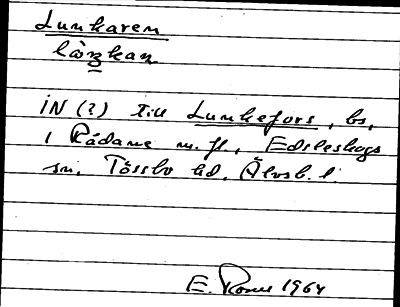 Lunkaren
IN (?) till Lunkefors, bs,
i Rådane m. fl., Edsleskogs
sn, Tössbo hd, Älvsb. l.
E. 1964